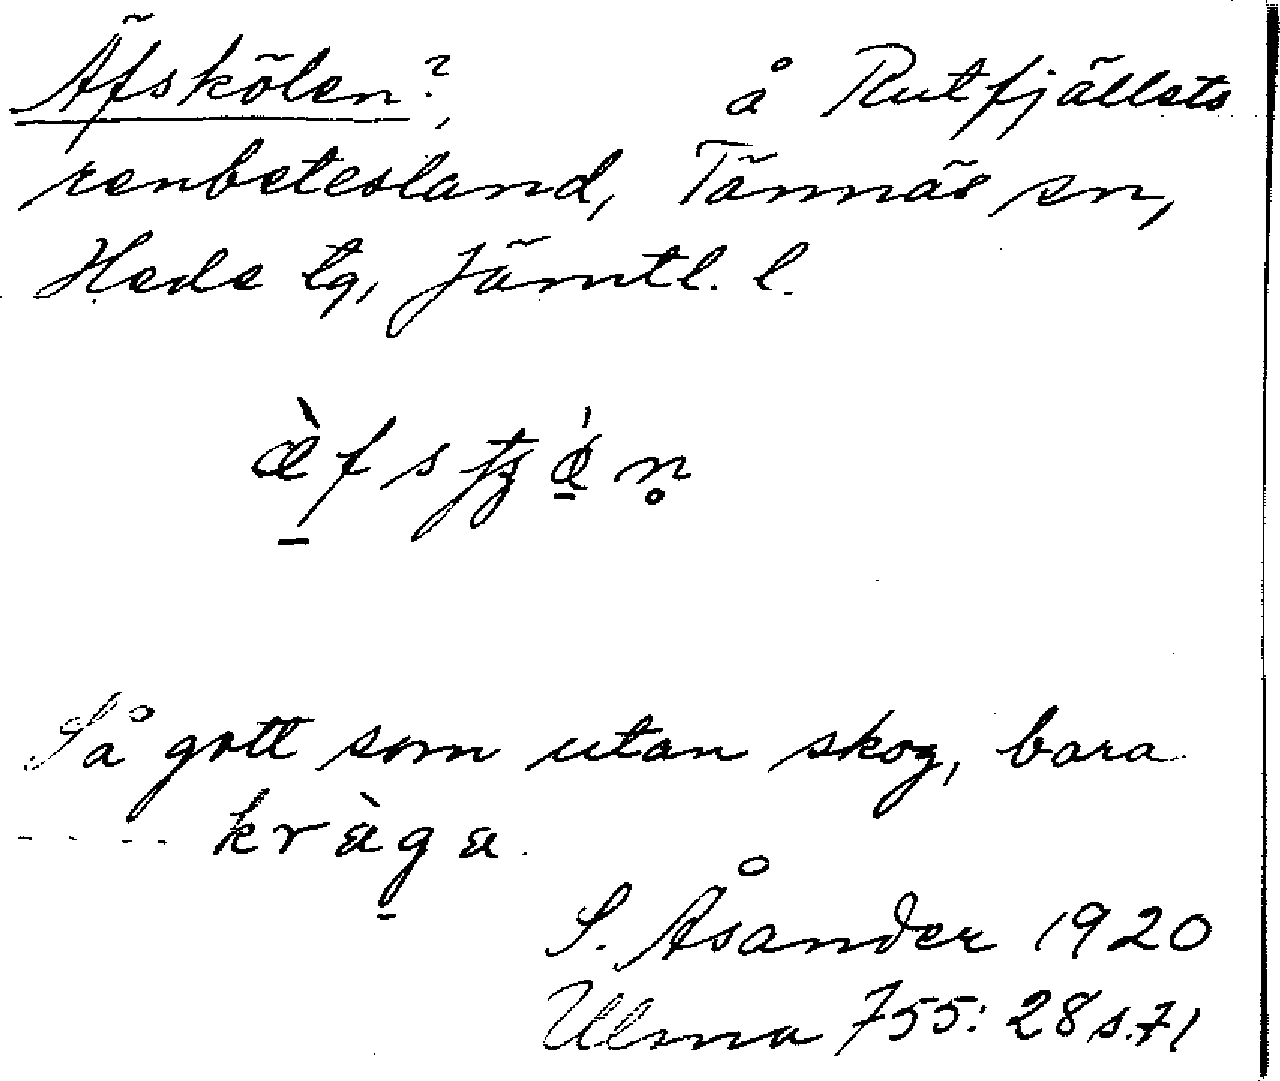 Äfskölen?, å Rutfjällets
renbetesland, Tännäs sn,
Hede tg, Jämtl. l.
Så gott som utan skog, bara
kràga.
S. Åsander 1920
Ulma 755: 28 s. 71